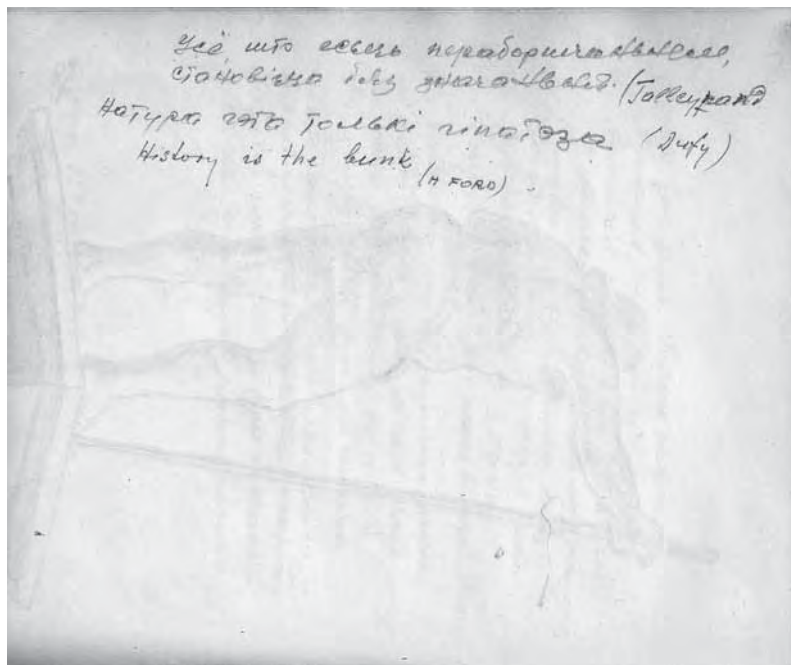 Усё што ёсць перабольшчанваем,
становіцца без значэння. (Talleyrand
Натура гэта толькі гіпатэза (Dufy)
History is the bunk
(H FORD).